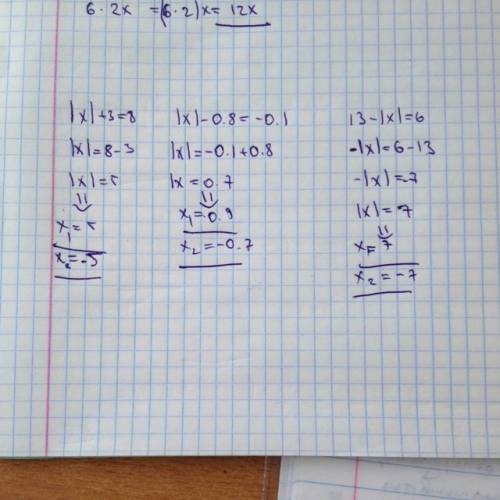 6 · 2x = (6 · 2)x = 12x
|x| + 3 = 8
|x| = 8 - 3
|x| = 5
x₁ = 5
x₂ = -5
|x| - 0.8 = -0.1
|x| = -0.1 + 0.8
|x = 0.7
x₁ = 0.9
x₂ = -0.7
13 - |x| = 6
-|x| = 6 - 13
-|x| = -7
|x| = 7
x₁= 7
x₂ = -7